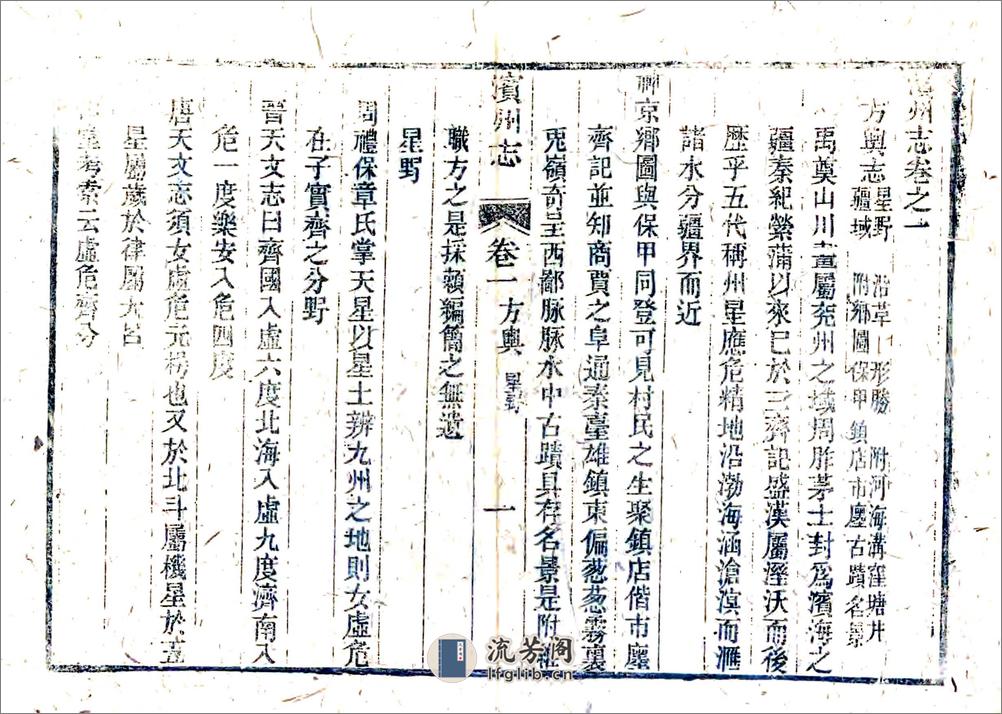 州志卷之一
方輿志 星野 沿革 形勝 附河海溝窪塘井
疆域 附鄉圖保甲鎮店市廛古蹟名景
禹奠山川 屬兖州之域周胙茅土封為濱海之
疆秦紀縈蒲以來已於三齊記盛漢屬溼沃而後
歷乎五代稱州星應危精地沿渤海涵滄溟而滙
諸水分疆界而近
京鄉圖與保甲同登可見村民之生聚鎮店偕市廛
齊記並知商賈之阜通秦臺雄鎮東偏葱葱霧裏
兎嶺奇呈西鄙脉脉水中古蹟具存名景是附
濱州志 卷一 方輿 星野 一
職方之是採賴編簡之無遺
星野
周禮保章氏掌天星以星土辨九州之地則女虛危
在子實齊之分野
晉天文志曰齊國入虛六度北海入虛九度濟南入
危一度樂安入危四度
唐天文志須女虛危元枵也又於北斗屬機星於五
星屬歲於律屬大呂
考索云虛危齊分
流芳阁
lfglib.cn